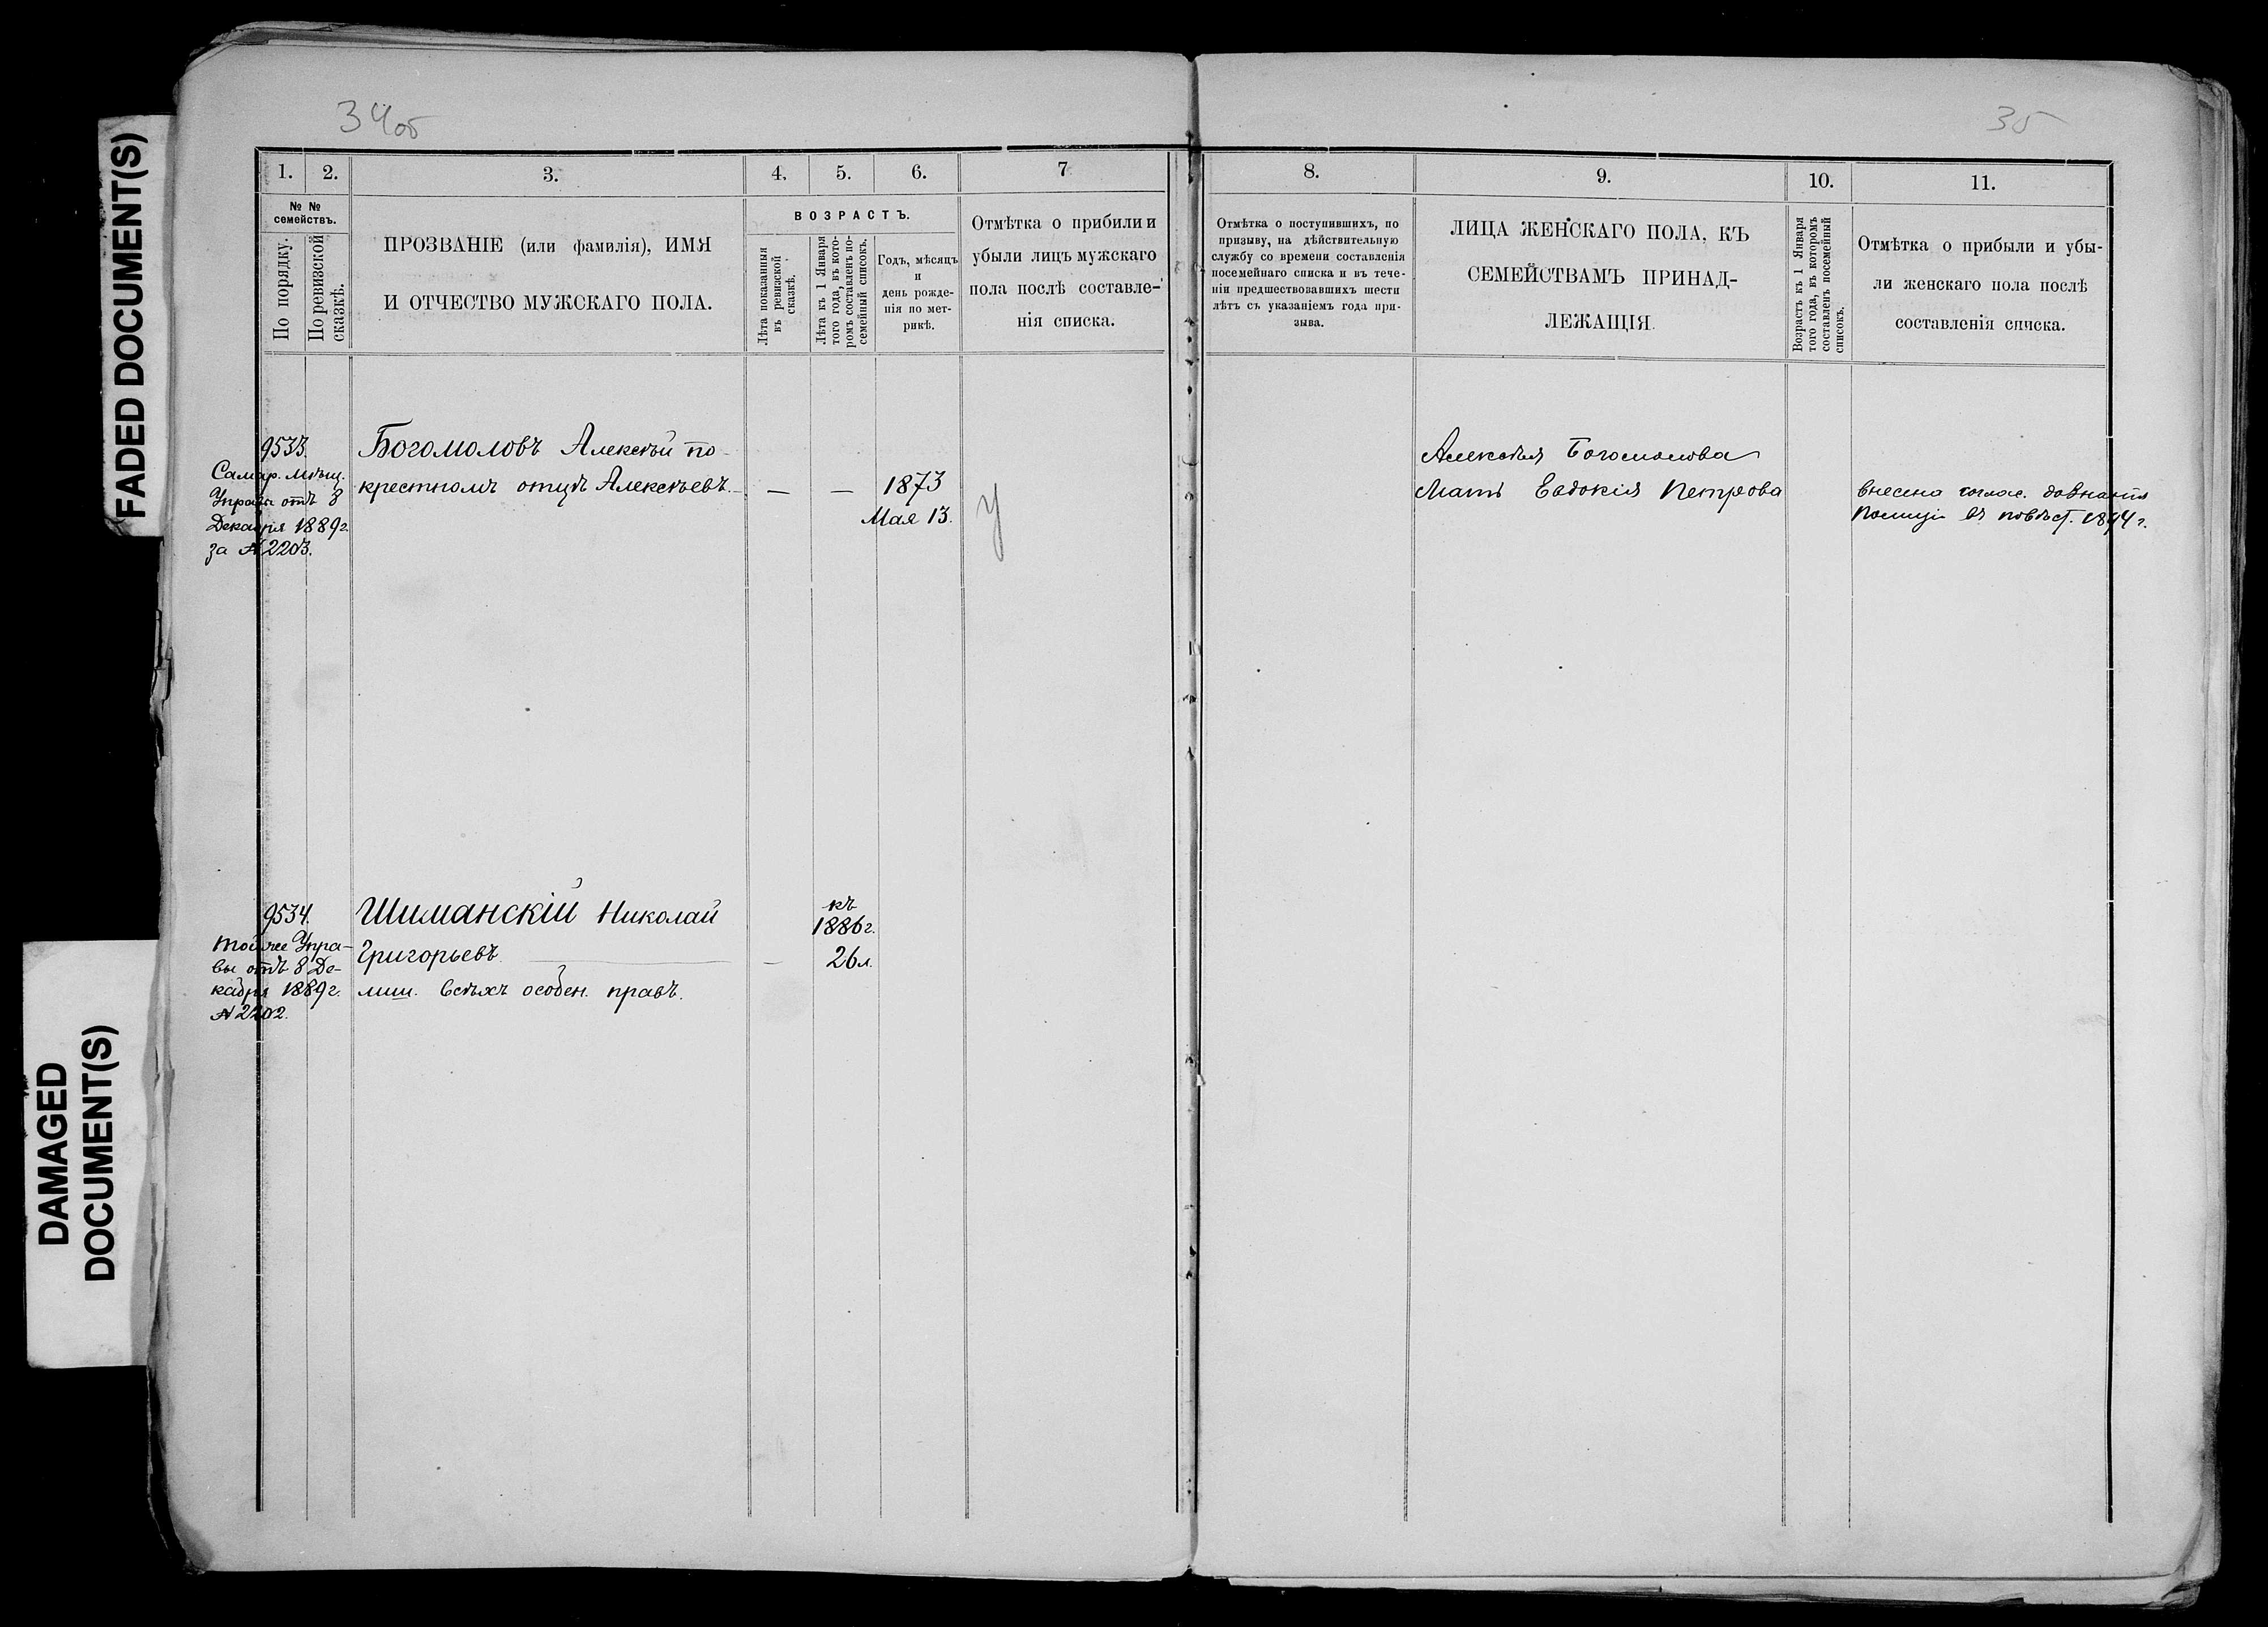 FADED DOCUMENT(S)
DAMAGED
DOCUMENT(S)
34об
35
1.
2.
3.
4.
5.
6.
7
8.
9.
10.
11.
№ №
семействъ.
По порядку.
По ревизской
сказкѣ.
ПРОЗВАНІЕ (или фамилія), ИМЯ
И ОТЧЕСТВО МУЖСКАГО ПОЛА.
ВОЗРАСТЪ.
Лѣта показанныя
въ ревизской
сказкѣ.
Лѣта къ 1 Января
того года, въ кото-
ромъ составленъ по-
семейный списокъ.
Годъ, мѣсяцъ
и
день рожде-
нія по мет-
рикѣ.
Отмѣтка о прибили и
убыли лицъ мужскаго
пола послѣ составле-
нія списка.
Отмѣтка о поступившихъ, по
призыву, на дѣйствительную
службу со времени составленія
посемейнаго списка и въ тече-
ніи предшествовавшихъ шести
лѣтъ съ указаніемъ года при-
зыва.
ЛИЦА ЖЕНСКАГО ПОЛА, КЪ
СЕМЕЙСТВАМЪ ПРИНАД-
ЛЕЖАЩІЯ.
Возрастъ къ 1 Января
того года, въ которомъ
составленъ посемейный
списокъ.
Отмѣтка о прибыли и убы-
ли женскаго пола послѣ
составленія списка.
9533.
Самар. мѣщ.
Управы отъ 8
Декабря 1889г.
за № 2203.
Богомоловъ Алексѣй по
крестномъ отцѣ Алексѣевъ. — —
1873
Мая 13.
У
Алексѣя Богомолова
Мать Евдокія Петрова
внесена соглас. дознанія
Полиціи въ повѣст. 1894 г.
9534.
той же Упра-
вы отъ 8 Де-
кабря 1889г.
№ 2202.
Шиманскій Николай
Григорьевъ —
лиш. всѣхъ особен. правъ.
къ
1886г.
26л.